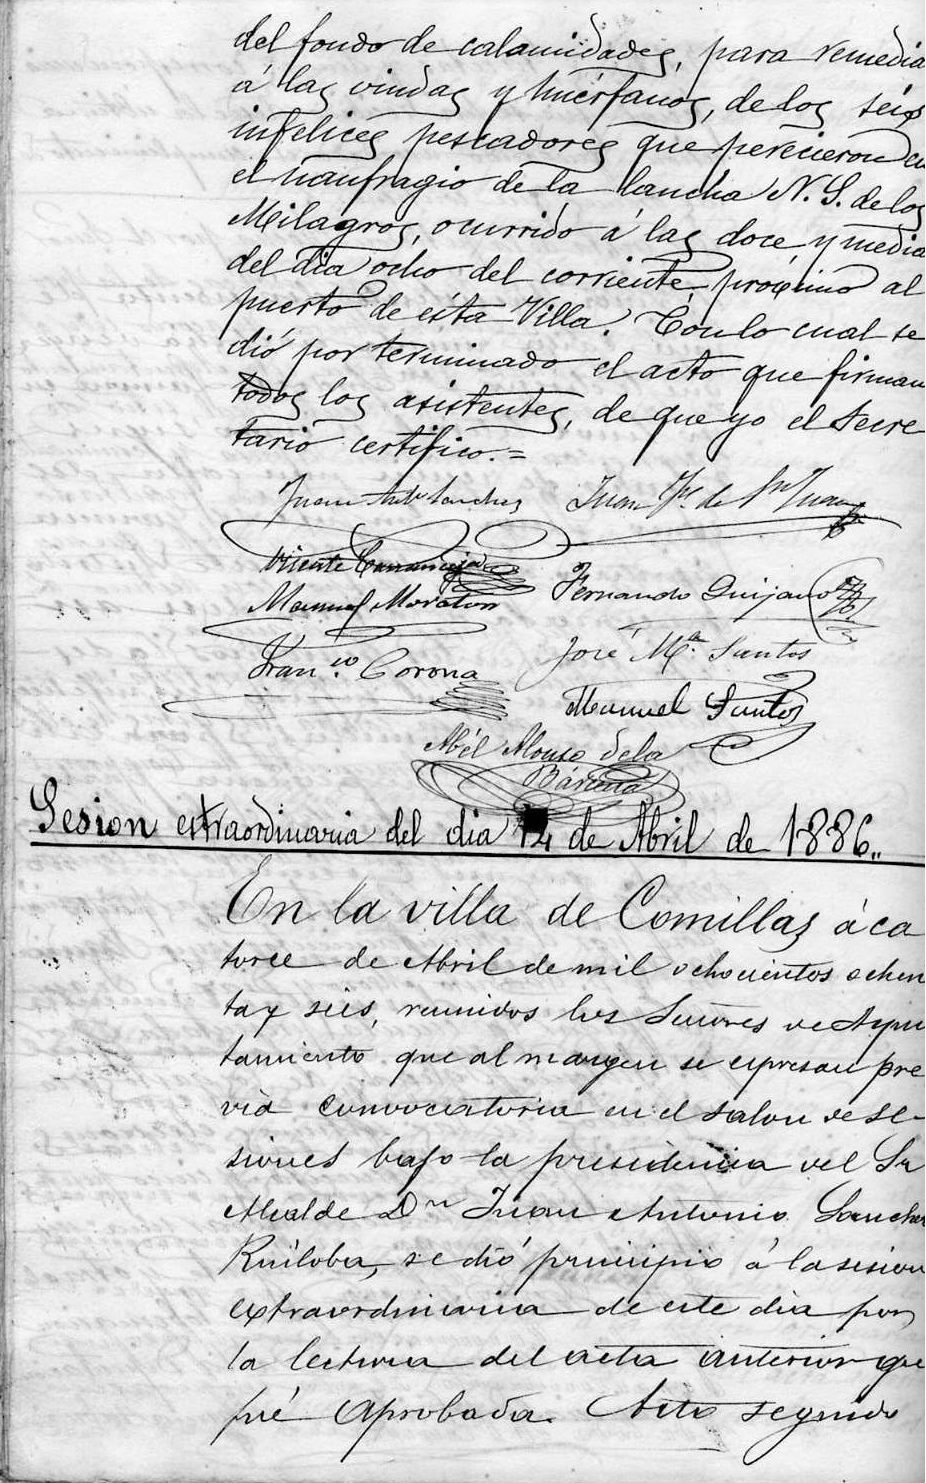 del fondo de calamidades, para remedia
á las viudas y huérfanos, de los seis
infelices pescadores que perecieron en
el naufragio de la lancha N. S. de los
Milagros, ocurrido á las doce y media
del dia ocho del corriente próximo al
puerto de ésta Villa. Con lo cual se
dió por terminado el acto que firman
todos los asistentes, de que yo el Secre
tario certifico.=
Juan Ant.º Sanchez Juan Fz. de Sn Juan
Vicente
Manuel Moraton Fernando Quijano
Fran.co Corona José M.ª Santos
Manuel Santos
Abél Alonso de la
Bárcena
Sesion extraordinaria del dia 14 de Abril de 1886.,
En la villa de Comillas á ca
torce de Abril de mil ochocientos ochen
ta y seis, reunidos los Señores de Ayun
tamiento que al margen se espresan pre
via convocatoria en el salon de se-
siones bajo la presidencia del Sr
Alcalde Dn Juan Antonio Sanchez
Ruiloba, se dió principio á la sesion
extraordinaria de este dia por
la lectura del acta anterior que
fué aprobada. Acto seguido